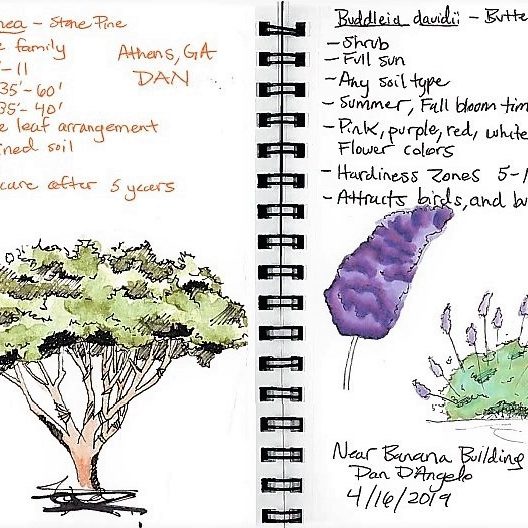 nea - Stone Pine
e family
Athens, GA
DAN
-11
35'-60'
35'-40'
e leaf arrangement
ined soil
care after 5 years
Buddleia davidii - Butte
- Shrub
- Full sun
- Any soil type
- Summer, Fall bloom tim
- Pink, purple, red, white
Flower colors
- Hardiness Zones 5-1
- Attracts birds, and bu
Near Banana Building
Dan D'Angelo
4/16/2019